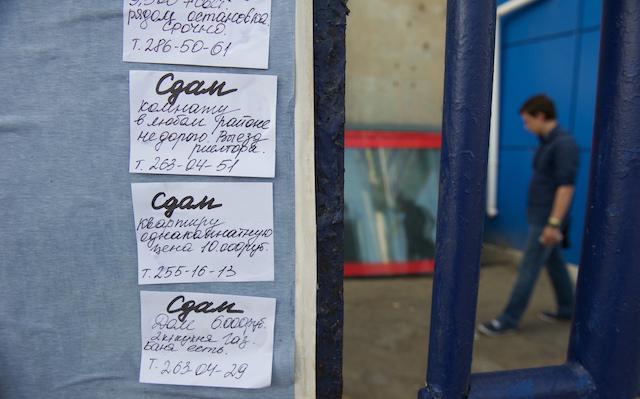 рядом остановка
срочно.
т. 286-50-61
Сдам
комнату
в любом районе
недорого Выезд
риелтора.
т. 263-04-51
Сдам
квартиру
однакамнатную
цена 10.000руб.
т. 255-16-13
Сдам
Дом 6.000руб.
баня есть.
т. 263-04-29